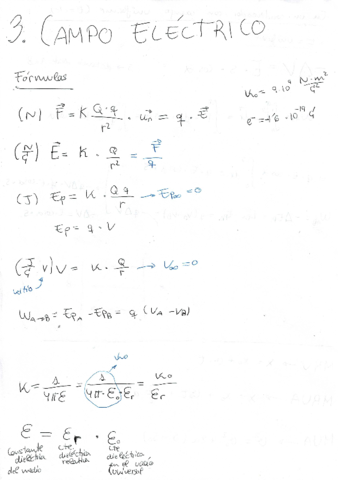 3. CAMPO ELÉCTRICO
Fórmulas
K₀ = 9·10⁹ N·m²/C²
e⁻ = 1'6·10⁻¹⁹ C
(N) F⃗ = K Q·q/r² · u⃗r = q · E⃗
(N/C) E⃗ = K · Q/r² = F⃗/q
(J) Ep = K · Q q/r → Ep∞ = 0
Ep = q · V
(J/C V) V = K · Q/r → V∞ = 0
voltio
W A→B = EpA - EpB = q (VA - VB)
K₀
K = 1/4πε = 1/4π·ε₀·εr = K₀/εr
ε = εr · ε₀
Constante dieléctrica del medio
cte dieléctrica relativa
cte dieléctrica en el vacío
(universal)